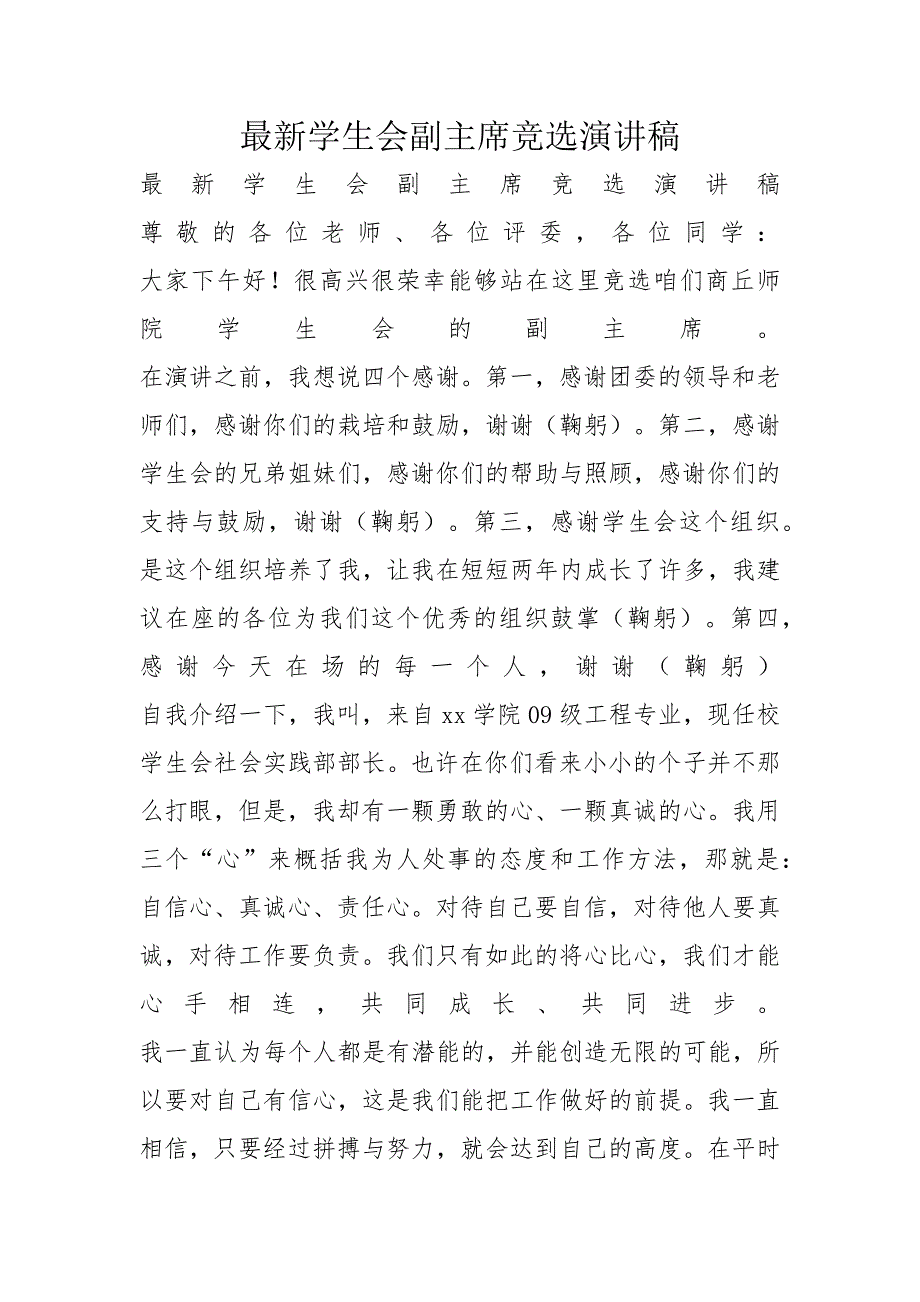 最新学生会副主席竞选演讲稿
最新学生会副主席竞选演讲稿
尊敬的各位老师、各位评委，各位同学：
大家下午好！很高兴很荣幸能够站在这里竞选咱们商丘师
院学生会的副主席。
在演讲之前，我想说四个感谢。第一，感谢团委的领导和老
师们，感谢你们的栽培和鼓励，谢谢（鞠躬）。第二，感谢
学生会的兄弟姐妹们，感谢你们的帮助与照顾，感谢你们的
支持与鼓励，谢谢（鞠躬）。第三，感谢学生会这个组织。
是这个组织培养了我，让我在短短两年内成长了许多，我建
议在座的各位为我们这个优秀的组织鼓掌（鞠躬）。第四，
感谢今天在场的每一个人，谢谢（鞠躬）
自我介绍一下，我叫，来自 xx 学院 09 级工程专业，现任校
学生会社会实践部部长。也许在你们看来小小的个子并不那
么打眼，但是，我却有一颗勇敢的心、一颗真诚的心。我用
三个“心”来概括我为人处事的态度和工作方法，那就是：
自信心、真诚心、责任心。对待自己要自信，对待他人要真
诚，对待工作要负责。我们只有如此的将心比心，我们才能
心手相连，共同成长、共同进步。
我一直认为每个人都是有潜能的，并能创造无限的可能，所
以要对自己有信心，这是我们能把工作做好的前提。我一直
相信，只要经过拼搏与努力，就会达到自己的高度。在平时